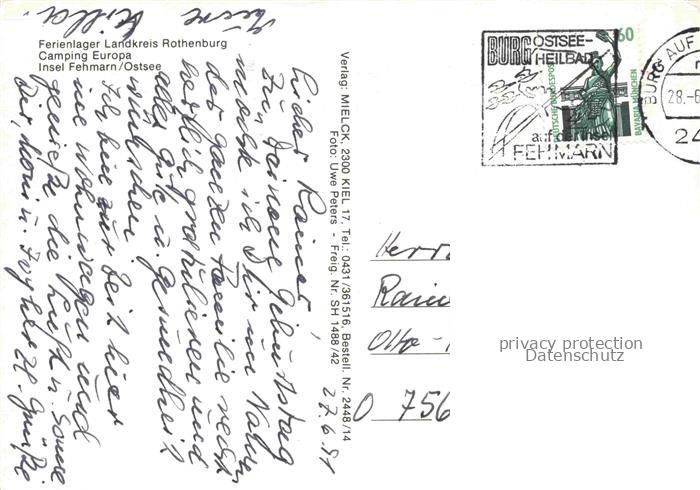 Ferienlager Landkreis Rothenburg
Camping Europa
Insel Fehmarn/Ostsee
Verlag: MIELCK, 2300 KIEL 17, Tel.: 0431/361516, Bestell. Nr. 2448/14
Foto: Uwe Peters - Freig. Nr. SH 1488/42
27.6.91
Lieber Rainer,
Zu Deinem Geburtstag
möcht ich Dir im Namen
der ganzen Familie recht
herzlich gratulieren und
alles Gute u. Gesundheit
wünschen.
Ich bin zur Zeit hier
im Wohnwagen und
genieße die Luft u. Sonne
Dir, u. herzl. Grüße
Deine
BURG OSTSEE-
HEILBAD
auf der Insel
FEHMARN
60
DEUTSCHE BUNDESPOST
BAVARIA MÜNCHEN
BURG AUF
28.-6
24
Herrn
Rain
Otto-
O 756
privacy protection
Datenschutz